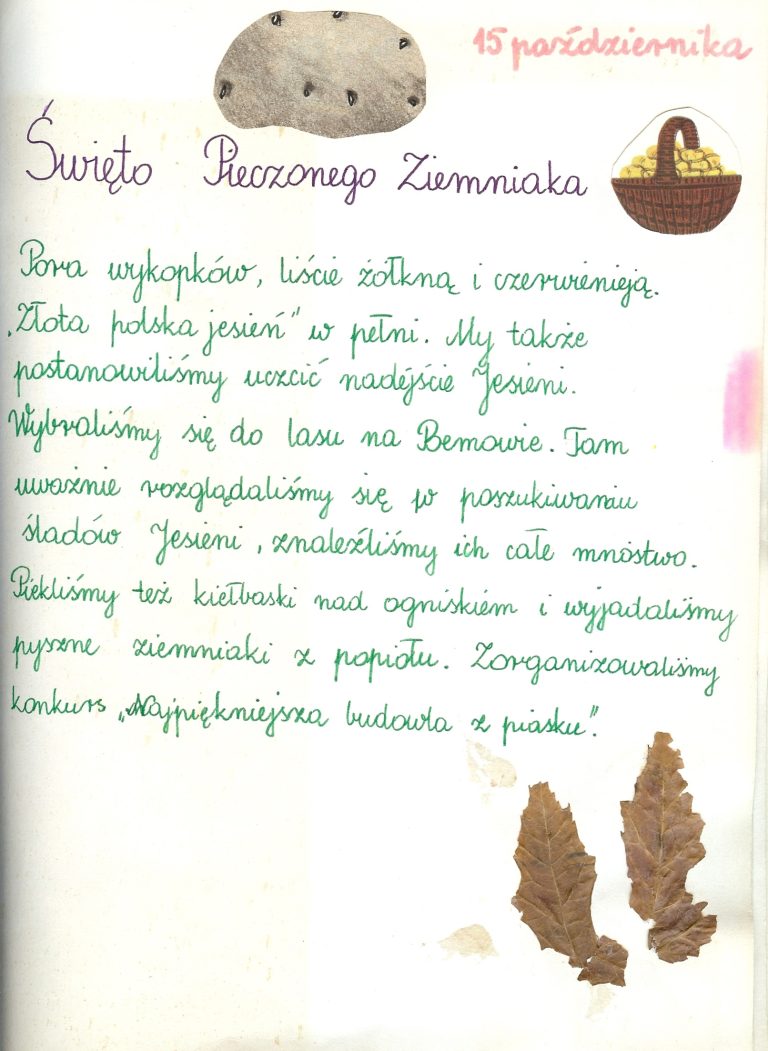 15 października
Święto Pieczonego Ziemniaka
Pora wykopków, liście żółkną i czerwienieją.
„Złota polska jesień" w pełni. My także
postanowiliśmy uczcić nadejście Jesieni.
Wybraliśmy się do lasu na Bemowie. Tam
uważnie rozglądaliśmy się w poszukiwaniu
śladów Jesieni, znaleźliśmy ich całe mnóstwo.
Piekliśmy też kiełbaski nad ogniskiem i wyjadaliśmy
pyszne ziemniaki z popiołu. Zorganizowaliśmy
konkurs „Najpiękniejsza budowla z piasku".